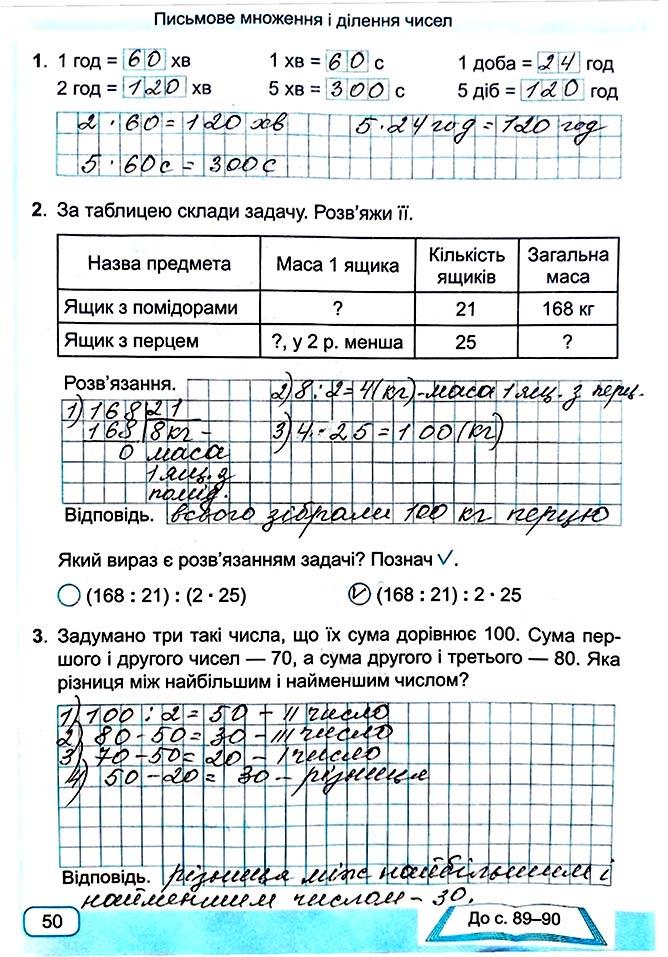 Письмове множення і ділення чисел
1. 1 год = 60 хв 1 хв = 60 с 1 доба = 24 год
2 год = 120 хв 5 хв = 300 с 5 діб = 120 год
2 · 60 = 120 хв 5 · 24 год = 120 год
5 · 60 с = 300 с
2. За таблицею склади задачу. Розв'яжи її.
Назва предмета Маса 1 ящика Кількість ящиків Загальна маса
Ящик з помідорами ? 21 168 кг
Ящик з перцем ?, у 2 р. менша 25 ?
Розв'язання. 2) 8 : 2 = 4 (кг) - маса 1 ящ. з перц.
1) 168 21
168 8 кг - 3) 4 · 25 = 100 (кг)
0 маса
1 ящ. з
помід.
Відповідь. всього зібрали 100 кг перцю
Який вираз є розв'язанням задачі? Познач ✓.
(168 : 21) : (2 · 25) ✓ (168 : 21) : 2 · 25
3. Задумано три такі числа, що їх сума дорівнює 100. Сума пер-
шого і другого чисел — 70, а сума другого і третього — 80. Яка
різниця між найбільшим і найменшим числом?
1) 100 : 2 = 50 - II число
2) 80 - 50 = 30 - III число
3) 70 - 50 = 20 - I число
4) 50 - 20 = 30 - різниця
Відповідь. різниця між найбільшим і
найменшим числом - 30.
50 До с. 89–90